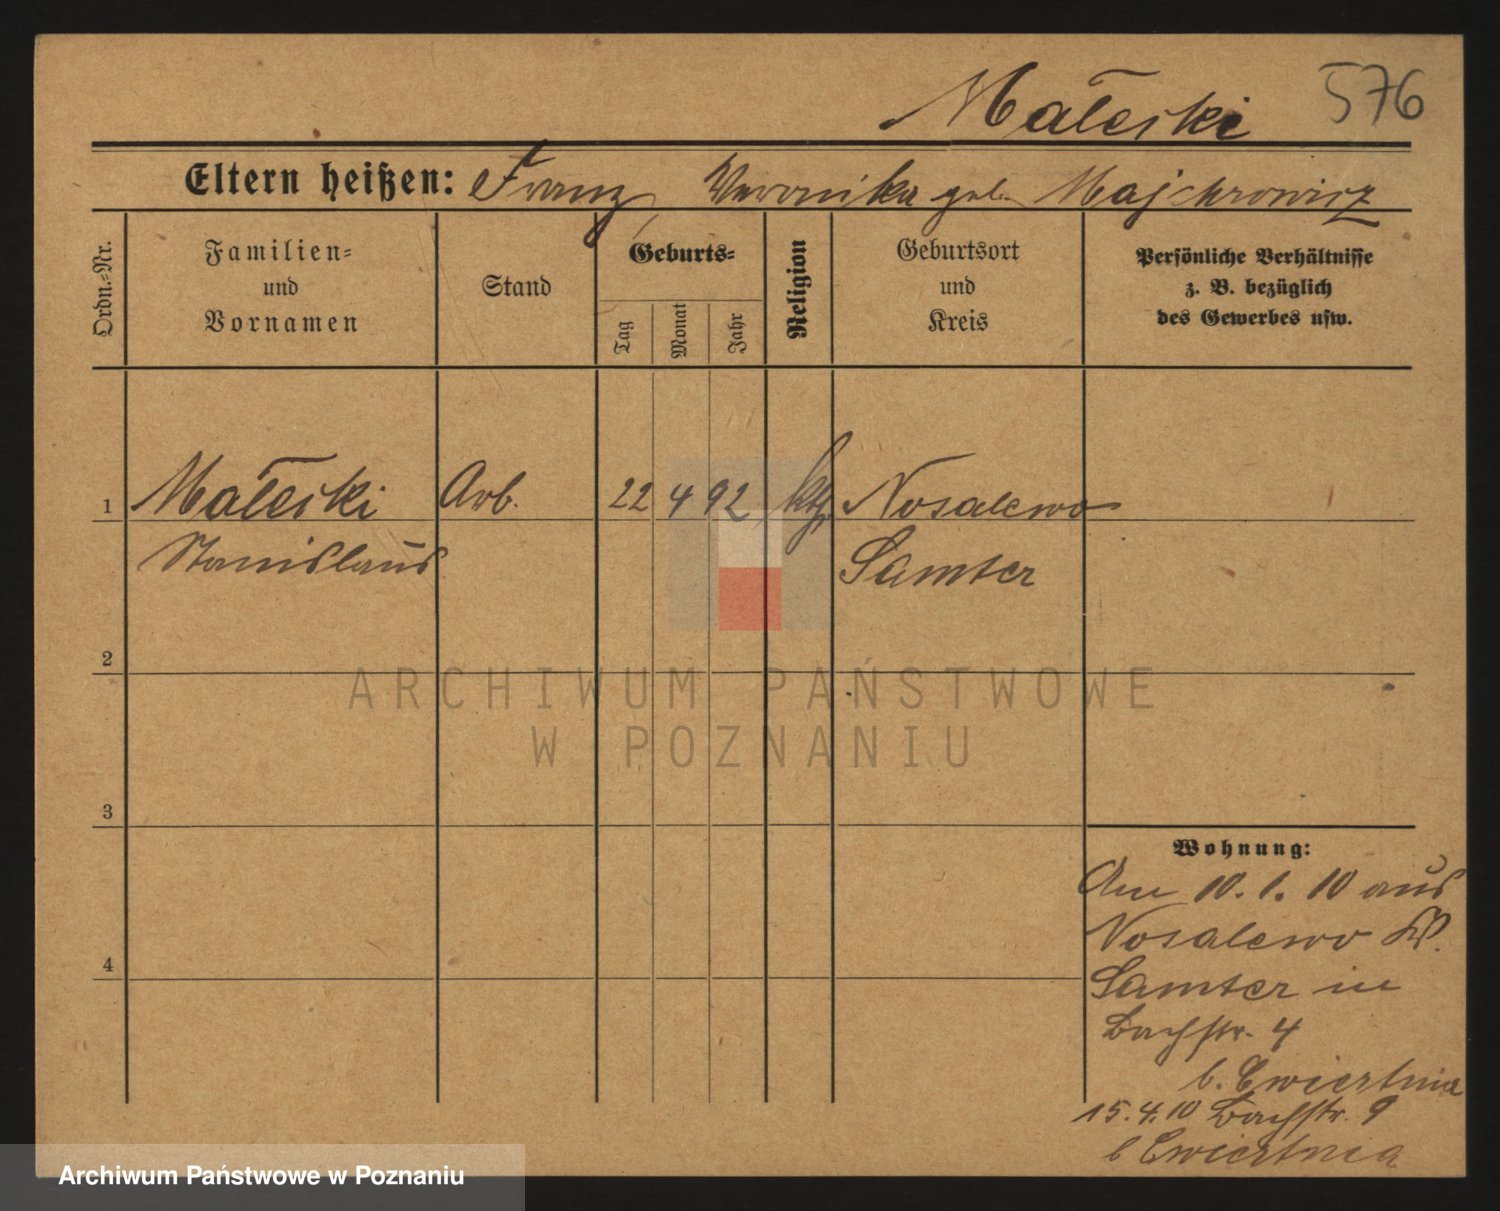 Małeski 576
Eltern heißen: Franz, Veronika geb. Majchrowicz
Ordn.=Nr.
Familien=
und
Vornamen
Stand
Geburts=
Tag
Monat
Jahr
Religion
Geburtsort
und
Kreis
Persönliche Verhältnisse
z. B. bezüglich
des Gewerbes usw.
1 Małeski Arb. 22 4 92 kth. Nosalewo
Stanislaus Samter
2
3
4
Wohnung:
Am 10. 1. 10 aus
Nosalewo Kr.
Samter in
Bachstr. 4
b. Cwiertnia
15. 4. 10 Bachstr. 9
b Cwiertnia
ARCHIWUM PAŃSTWOWE
W POZNANIU
Archiwum Państwowe w Poznaniu